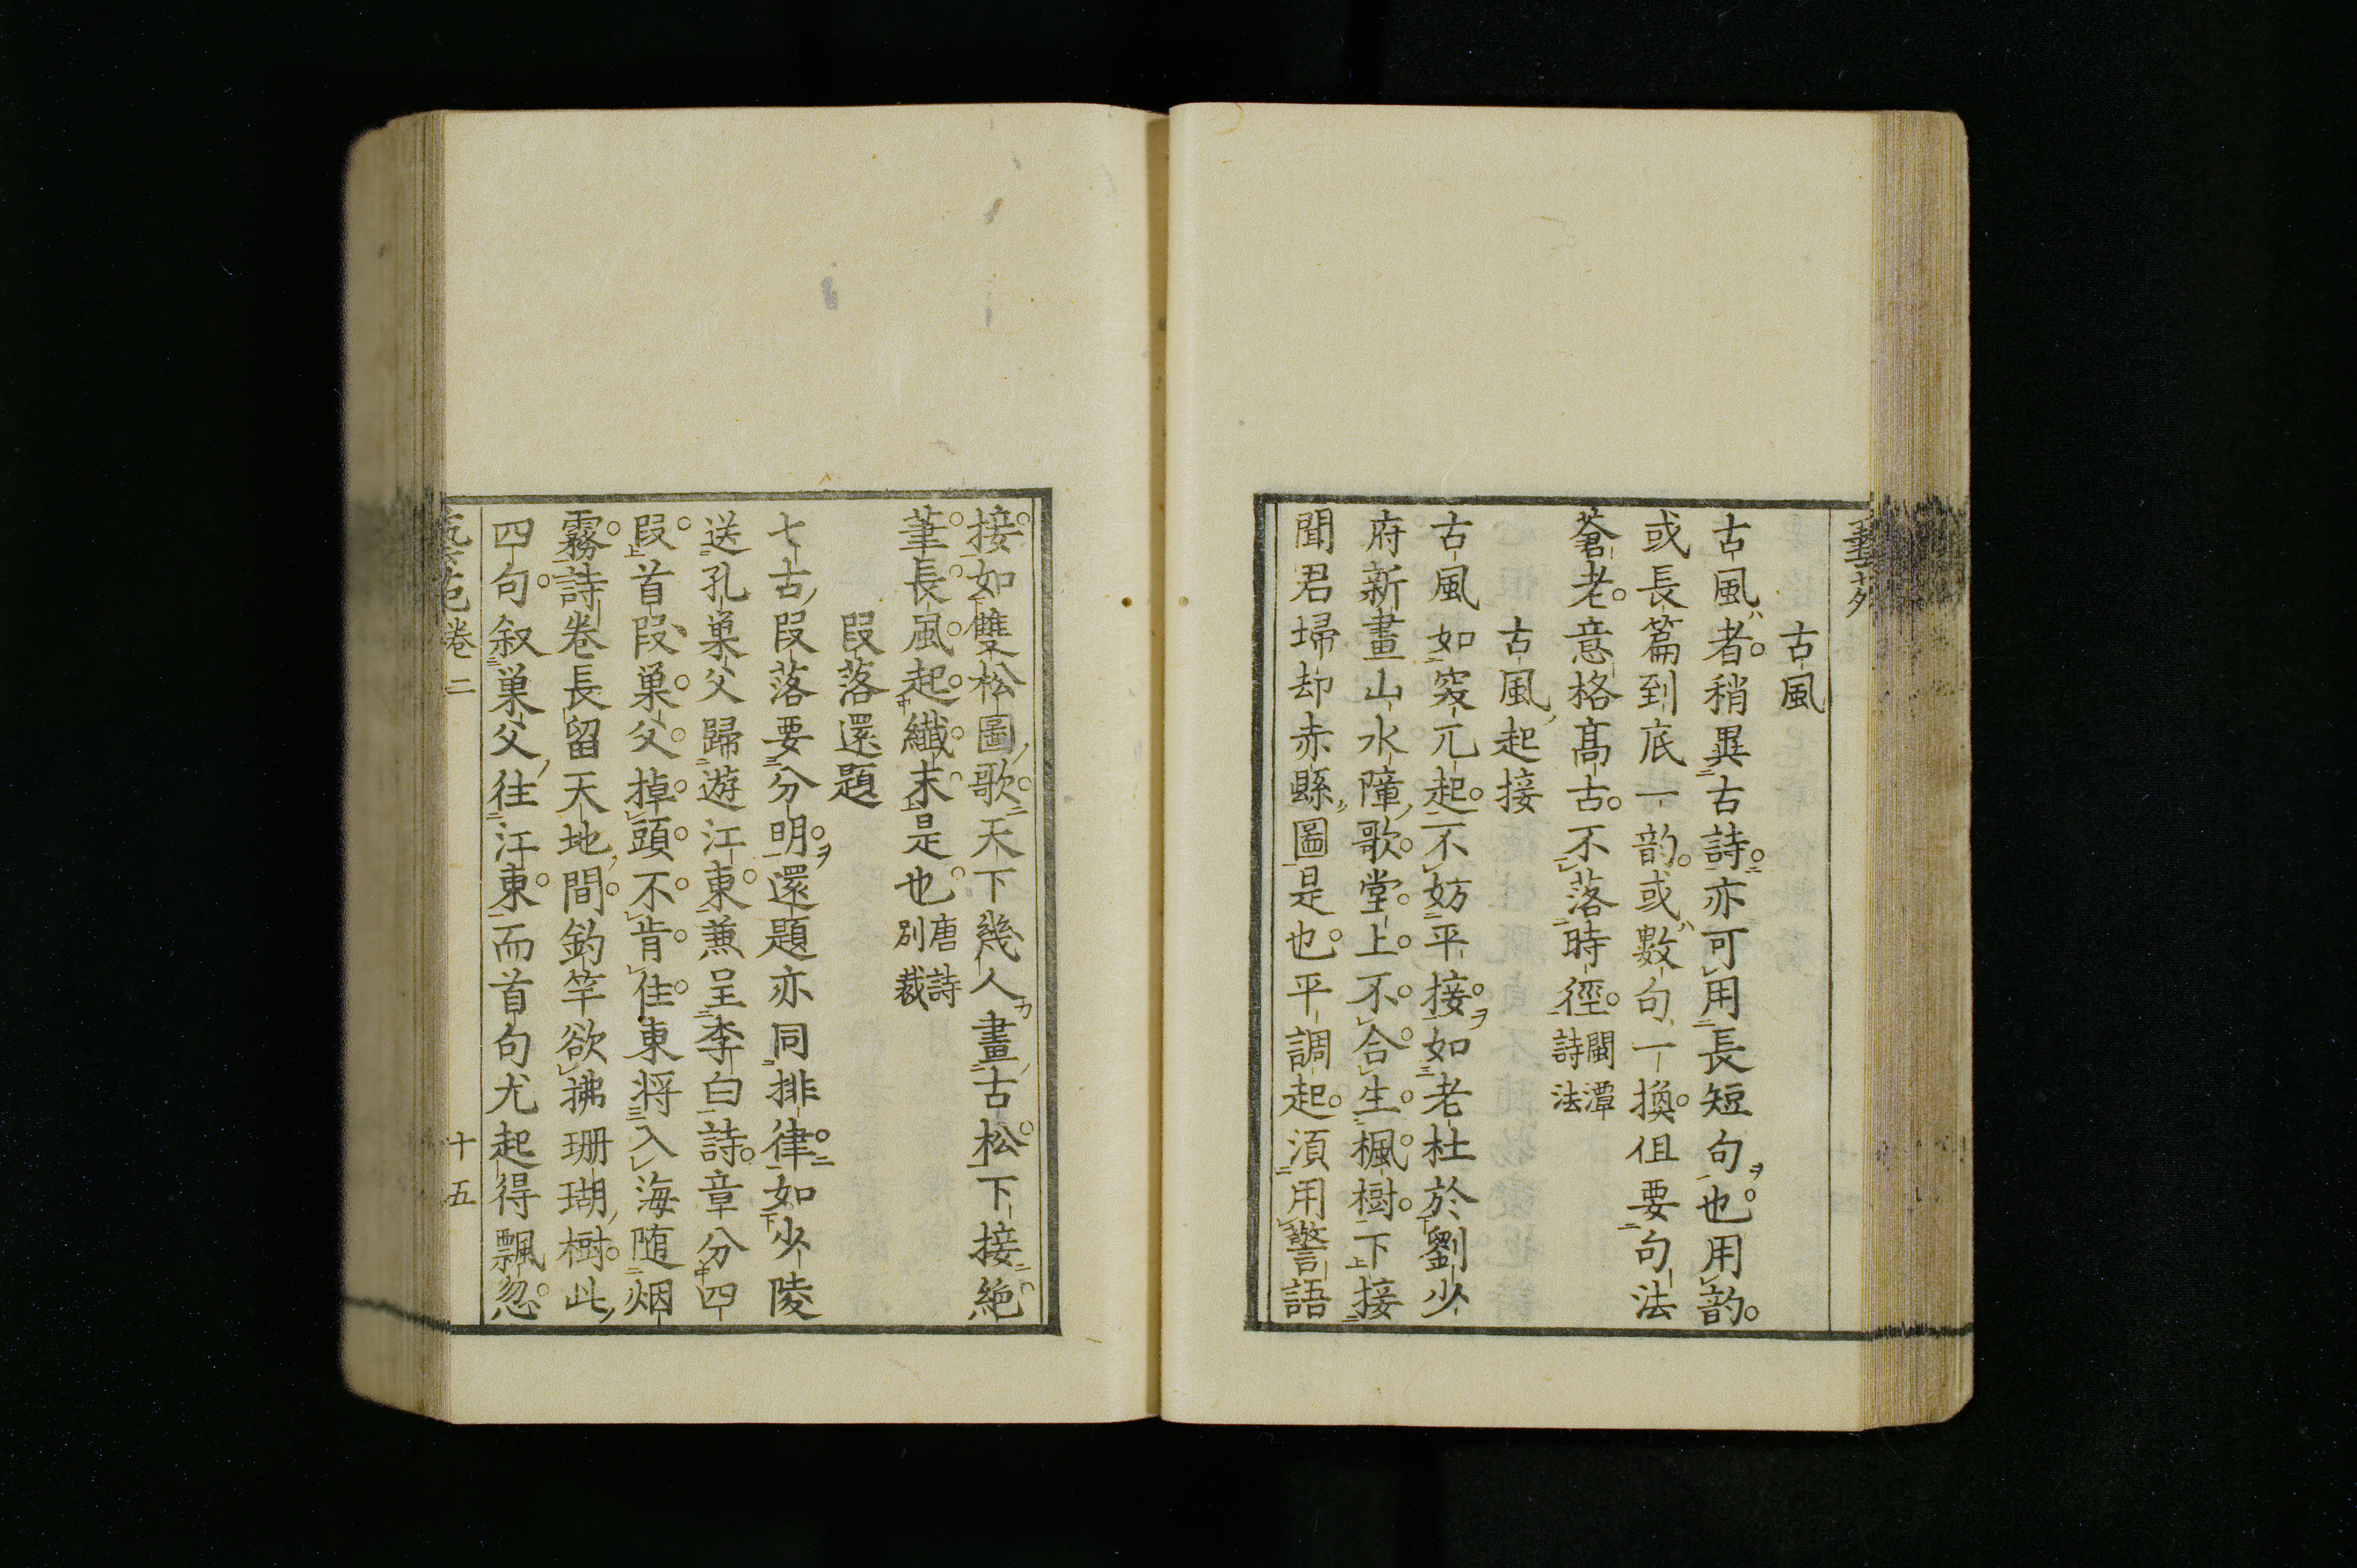 古風
古風者稍異古詩亦可用長短句也用韵
或長篇到底一韵或數句一換但要句法
蒼老意格髙古不落時徑閩潭詩法
古風起接
古風如突兀起不妨平接如老杜於劉少
府新畫山水障歌堂上不合生楓樹下接
聞君埽却赤縣圖是也平調起須用警語
接如雙松圖歌天下幾人畫古松下接絶
筆長風起纖末是也唐詩別裁
段落還題
七古段落要分明還題亦同排律如少陵
送孔巢父歸遊江東兼呈李白詩章分四
段首段巢父掉頭不肯住東将入海随烟
霧詩卷長留天地間釣竿欲拂珊瑚樹此
四句叙巢父往江東而首句尤起得飄忽
卷二
十五